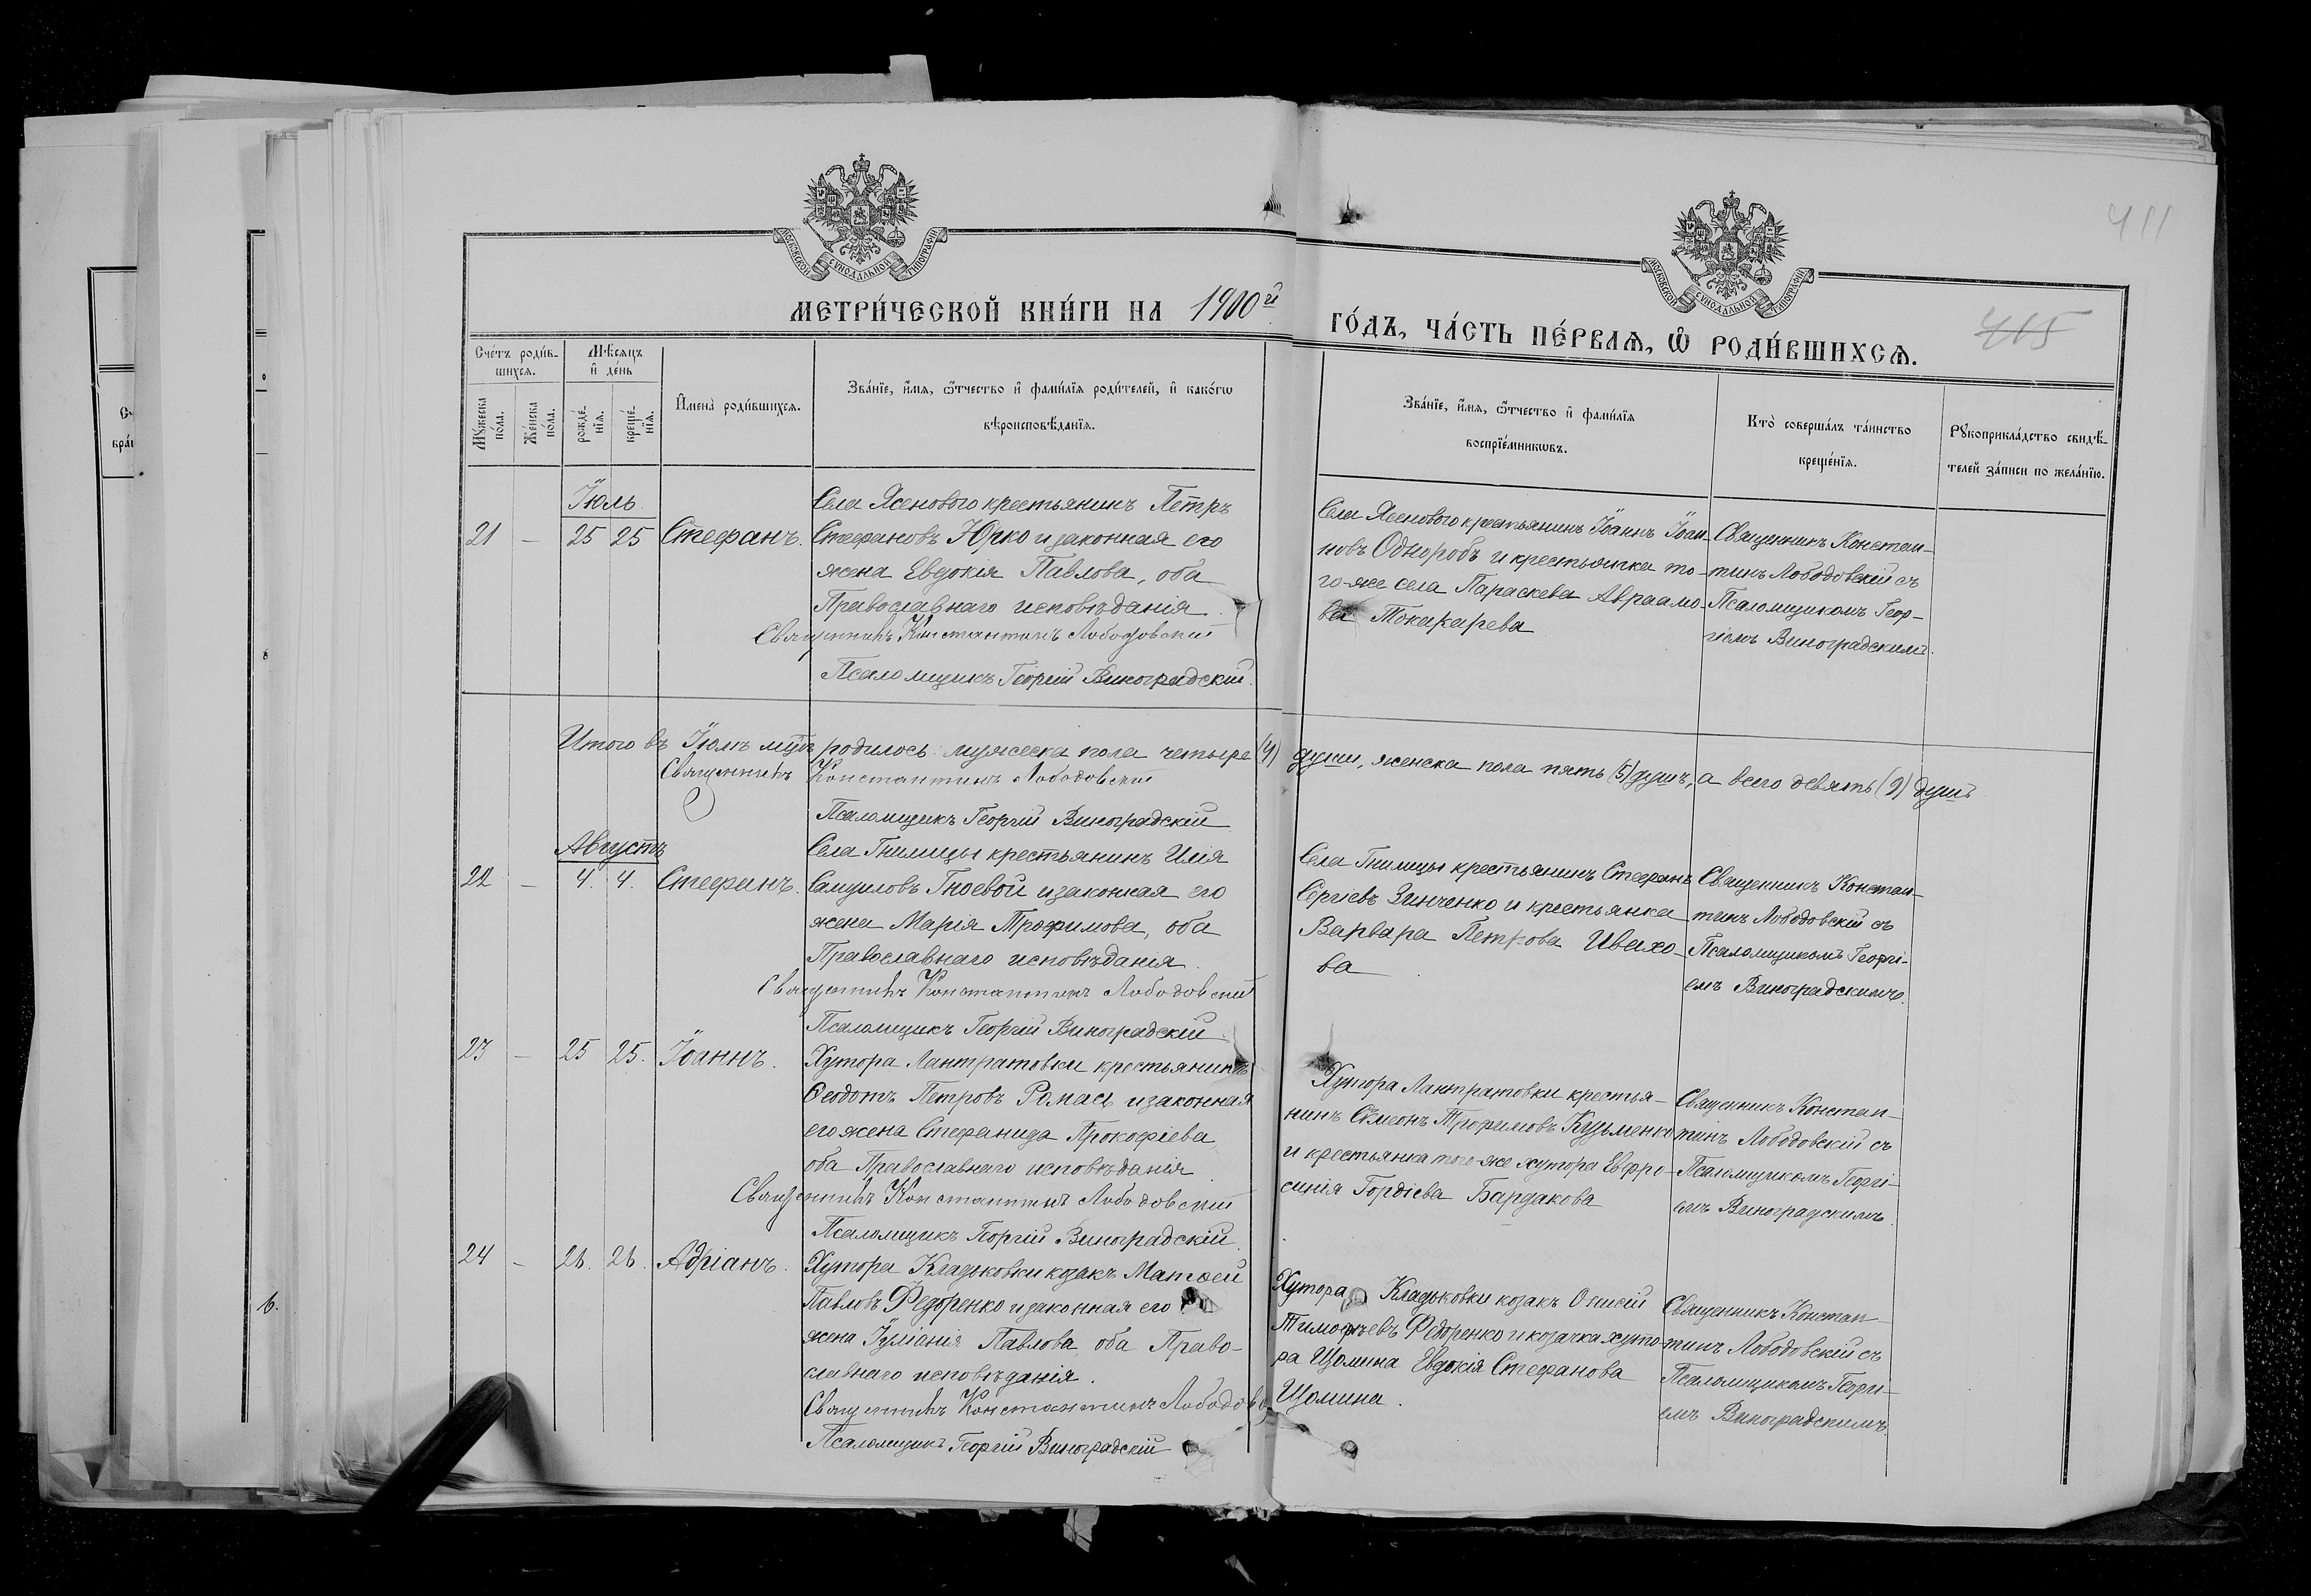 МОСКОВСКОЙ СѴНОДАЛЬНОЙ ТИПОГРАФІИ
МОСКОВСКОЙ СѴНОДАЛЬНОЙ ТИПОГРАФІИ
411
415
МЕТРИ́ЧЕСКОЙ КНИ́ГИ НА 1900й
ГО́ДЪ, ЧА́СТЬ ПЕ́РВАѦ, Ѿ РОДИ́ВШИХСѦ.
Сче́тъ роди́в-
шихсѧ.
Мꙋ́жеска по́ла.
Же́нска по́ла.
Мѣ́сѧцъ
и҆ де́нь
рожде́-нїѧ.
креще́-нїѧ.
И҆мена̀ роди́вшихсѧ.
Зва́нїе, и҆́мѧ, ѻ҆́тчество и҆ фами́лїѧ роди́телей, и҆ како́гѡ
вѣроисповѣ́данїѧ.
Зва́нїе, и҆́мѧ, ѻ҆́тчество и҆ фами́лїѧ
воспрїе́мникѡвъ.
Кто̀ соверша́лъ та́инство
креще́нїѧ.
Рꙋкоприкла́дство свидѣ́-
телей за́писи по жела́нїю.
Іюль
21 — 25 25 Стефанъ.
Села Ясенового крестьянинъ Петръ
Стефановъ Юрко и законная его
жена Евдокія Павлова, оба
Православнаго исповѣданія.
Священникъ Константинъ Лободовскій
Псаломщикъ Георгій Виноградскій.
Села Ясенового крестьянинъ Іоаннъ Іоан-
новъ Одноробъ и крестьянка то-
го-же села Параскева Авраамо-
ва
Священникъ Констан-
тинъ Лободовскій съ
Псаломщикомъ Геор-
гіемъ Виноградскимъ.
Итого въ Іюлѣ мцѣ родилось: мужеска пола четыре (4) души, женска пола пять (5) душъ, а всего девять (9) душъ
Священникъ Константинъ Лободовскій
Псаломщикъ Георгій Виноградскій
Августъ
22 — 4. 4. Стефанъ.
Села Гнилицы крестьянинъ Илія
Самуиловъ Гноевой и законная его
жена Марія Трофимова, оба
Православнаго исповѣданія.
Священникъ Константинъ Лободовскій
Псаломщикъ Георгій Виноградскій.
Села Гнилицы крестьянинъ Стефанъ
Сергіевъ Зинченко и крестьянка
Варвара Петрова Ивахо-
ва
Священникъ Констан-
тинъ Лободовскій съ
Псаломщикомъ Георгі-
емъ Виноградскимъ.
23 — 25 25. Іоаннъ.
Хутора Лантратовки крестьянинъ
Ѳеодотъ Петровъ Ромась и законная
его жена Стефанида Прокофіева
оба Православнаго исповѣданія.
Священникъ Константинъ Лободовскій
Псаломщикъ Георгій Виноградскій.
Хутора Лантратовки крестья-
нинъ Сѵмеонъ Трофимовъ Кузьменко
и крестьянка того-же хутора Евфро-
синія Гордіева Бардакова
Священникъ Констан-
тинъ Лободовскій съ
Псаломщикомъ Георгі-
емъ Виноградскимъ.
24 — 26. 26. Адріанъ.
Хутора Кладьковки козакъ Матѳей
Павловъ Федоренко и законная его
жена Іуліанія Павлова, оба Право-
славнаго исповѣданія.
Священникъ Константинъ Лободов
Псаломщикъ Георгій Виноградскій
Хутора Кладьковки козакъ Онисій
Тимофеевъ Федоренко и козачка хуто-
ра Щомина Евдокія Стефанова
Щомина.
Священникъ Констан-
тинъ Лободовскій съ
Псаломщикомъ Георгі-
емъ Виноградскимъ.